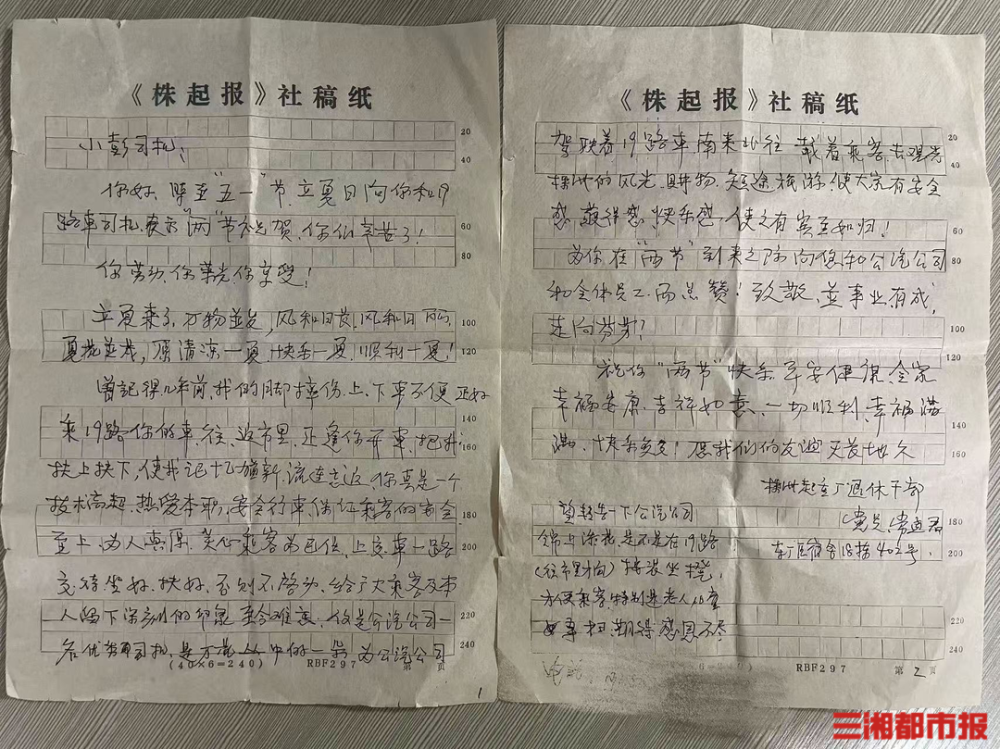 《株起报》社稿纸
小彭司机:
你好、时至"五一"节、立夏日向你和19
路车司机表示"两"节祝贺、你们辛苦了!
你劳动、你光荣、你享受!
立夏来了、万物并复,风和日岚,风和日丽,
夏花并茂,愿清凉一夏、快乐一夏、顺利一夏!
曾记得几年前、我的脚摔伤、上、下车不便、正好
乘19路你的车、往、返市里、正逢你开车、把我
扶上扶下、使我记忆犹新、流连忘返、你真是一个
技术高超、热爱本职、安全行车、保证乘客的安全
至上、为人宽厚、关心乘客为己任,上、交车一路
交待坐好、扶好、否则不启动、给广大乘客及本
人留下深刻的印象、至今难忘、你是公汽公司一
名优秀司机、是万花丛中的一朵、为公汽公司
(40×6=240) RBF297 第 页
1
20
40
60
80
100
120
140
160
180
200
220
240
《株起报》社稿纸
驾驶着19路车、南来北往、载着乘客、去观光
株洲的风光、购物、短途旅游、使大家有安全
感、获得感、快乐感、使之有宾至如归!
为你在"两节"到来之际向您和公汽公司
和全体员工而点赞!致敬、并事业有成,
走向芬芳!
祝你"两节"快乐、平安健康、全家
幸福安康、吉祥如意、一切顺利、幸福满
满、快乐多多!愿我们的友谊天长地久
株洲起重厂退休干部
望报告一下公汽公司
锦上添花是不是在19路
(往市里的)椅装坐垫,
方便乘客特别是老人
(40×6=240) RBF297 第2页
20
40
60
80
100
120
140
160
180
200
220
240
三湘都市报